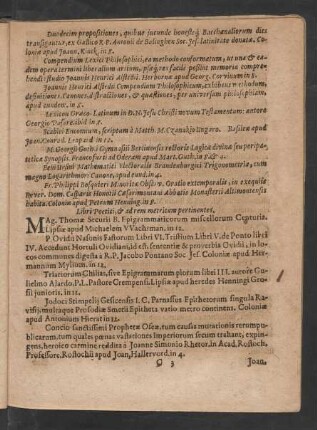 Duodecim propositiones, quibus jucunde honesteq; Bacchanaliorum dies
transigantur, ex Gallico R. P. Antonii de Balinghem Soc. Jes. latinitate donata. Co-
loniæ apud Joann, Kinck, in 8.
Compendium Lexici Philosophici, ea methodo conformatum, ut una & ea-
dem opera termini liberalium artium, piseq; res facili possint memoria comprehendi
studio Joannis Henrici Alstedii. Herbornæ apud Georg. Corvinum in 8.
Joannis Henrici Alstedii Compendium Philosophicum, exhibens methodum,
definitiones, Canones, distinctiones, & quæstiones, per universam philosophiam,
apud eundem. in 8.
Lexicon Græco-Latinum in D. N. Jesu Christi novum Testamentum: autore
Georgio Pasore ibid. in 8.
Scabies Ennonium, scriptum à Matth. M. Basileæ apud
Joan. Conrad. Leopard in 12.
M. Georgii Gerhes Gymnasii Bernensis rectoris Logicæ divinæ seu peripa-
teticæ Synopsis. Francofurti ad Oderam apud Mart. Guth, in 8 & 4.
Benjamini Mathematici Electoralis Brandenburgici Trigonometria, cum
magno Logarithmor. Canone, apud eund. in 4.
Fr. Philippi Bosquieri Mauritæ Observ. Oratio extemporalis, in exequiis
Rever. Dom. Casparis Honticii Cæsarimontani Abbatis Monasterii Altimontensis
habita. Coloniæ apud Petrum Henning. in 8.
Libri Poetici, & ad rem metricam pertinentes.
MAg. Thomæ Securii B. Epigrammaticorum miscellorum Centuria.
Lipsiæ apud Michaelem VVachsman. in 12.
P. Ovidii Nasonis Fastorum Libri VI. Tristium Libri V. de Ponto libri
IV. Accedunt Hortuli Ovidiani, id est, sententiæ & proverbia Ovidii, in lo-
cos communes digesta à R. P. Jacobo Pontano Soc. Jes. Coloniæ apud Her-
mannum Mylium. in 12.
Triatriorum Chilias, sive Epigrammatum piorum libri III. autore Gui-
lielmo Alardo. P. L. Pastore Crempensi. Lipsiæ apud heredes Henningi Gros-
sii junioris, in 12.
Jodoci Stimpelii Gesicensis I. C. Parnassus Epithetorum singula Ra-
visii, multaque Prosodiæ Smetii Epitheta vario metro continens. Coloniæ
apud Antonium Hierat in 12.
Concio sanctissimi Prophetæ Oseæ, tum causas mutationis rerumpu-
blicarum, tum quales pœnas vastationes Imperiorum secum trahant, expin-
gens, heroico carmine reddita à Joanne Simonio Rhetor. in Acad. Rostoch.
Professore. Rostochii apud Joan, Hallervord. in 4.
G 3
Joan.